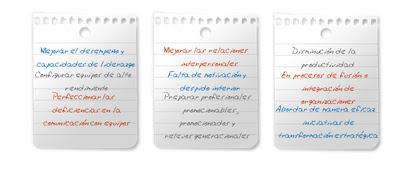 Mejorar el desempeño y
capacidades de liderazgo
Configurar equipos de alto
rendimiento
Perfeccionar las
deficiencias en la
comunicación con equipos
Mejorar las relaciones
interpersonales
Falta de motivación y
despido interior
Preparar profesionales
promocionables,
promocionados y
relevos generacionales
Disminución de la
productividad
En procesos de fusión o
integración de
organizaciones
Abordar de manera eficaz
iniciativas de
transformación estratégica